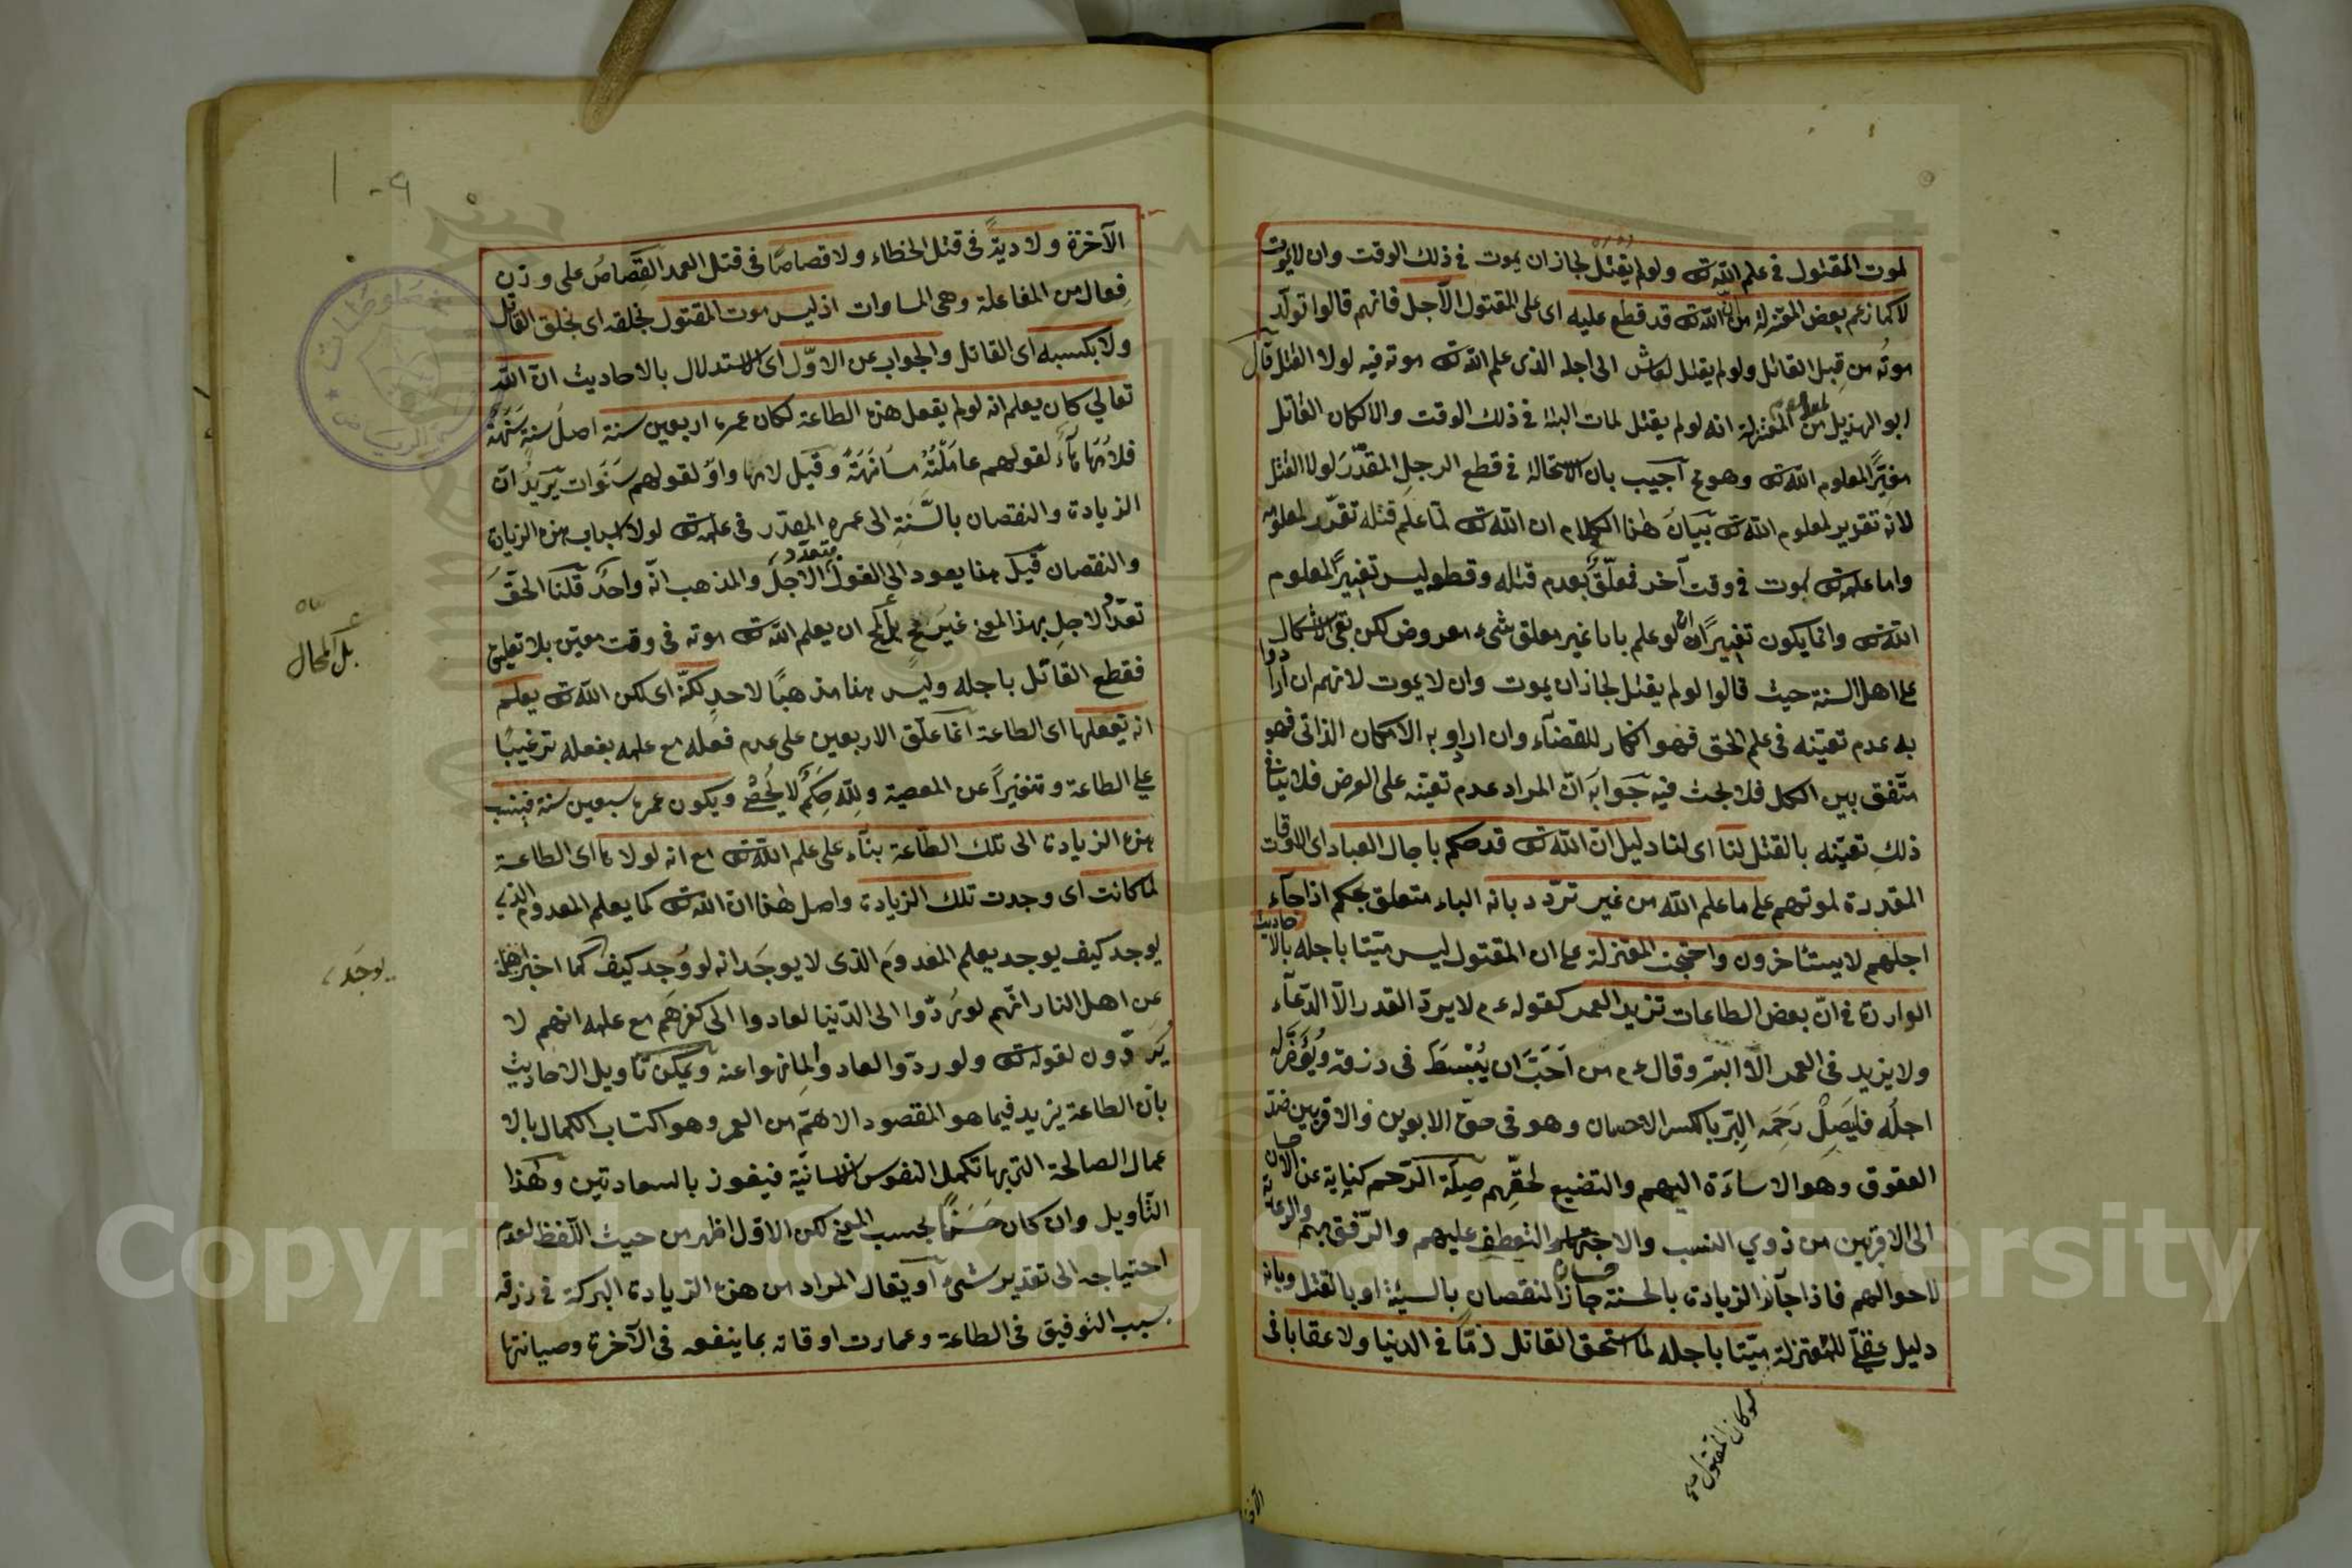 لموت المقتول في علم الله تع ولو لم يقتل لجاز ان يموت في ذلك الوقت وان لا يموت
لا كما زعم بعض المعتزلة من ان الله تع قد قطع عليه اى على المقتول الاجل فانهم قالوا تولّد
موتُه من قِبل القاتل ولو لم يقتل لعاش الى اجله الذى علم الله تع موته فيه لولا القتل قال
ابو الهذيل من المعتزلة انه لو لم يقتل لمات البتة في ذلك الوقت والا لكان القاتل
مغيّرًا لمعلوم الله تع وهو مح اجيب بان الاستحالة في قطع الاجل المقدّر لولا القتل
لانه تقرير لمعلوم الله تع بيان هذا الكلام ان الله تع لمّا علم قتله تقرّر لمعلومه
واما علمه تع بموت في وقت آخر فمعلّقٌ بعدم قتله وقطعه ليس تغييرًا لمعلوم
الله تع وانما يكون تغييرًا ان لو علم باباء غير معلق بشىء معروض لكن بقى الاشكال
على اهل السنة حيث قالوا لو لم يقتل لجاز ان يموت وان لا يموت لانهم ان ارادوا
به عدم تعيّنه فى علم الحق فهو انكار للقضآء وان ارادوا به الامكان الذاتى فهو
متّفق بين الكل فلا بحث فيه جوابه انّ المراد عدم تعيّنه على الفرض فلا ينافى
ذلك تعيّنه بالقتل لنا اى لنا دليل انّ الله تع قد حكم باجال العباد اى الاوقات
المقدرة لموتهم على ما علم الله من غير تردّد بانه الباء متعلق بحكم اذا جآء
اجلهم لا يستأخرون واحتجت المعتزلة على ان المقتول ليس ميّتا باجله بالاحاديث
الواردة في انّ بعض الطاعات تزيد العمر كقوله ع م لا يردّ القدر الّا الدّعآء
ولا يزيد فى العمر الا البرّ وقال ع م من اَحَبَّ ان يُبْسَطَ فى رزقه ويُؤَخَّرَ له
اجلُه فليَصِلْ رَحِمَه البِرّ بالكسر الاحسان وهو فى حقّ الابوين والاقربين ضدّ
العقوق وهو الاساءَة اليهم والتضييع لحقّهم صِلَة الرّحم كناية عن الاحسان
الى الاقربين من ذوي النسب والتعطف عليهم والرّفق بهم والرعاية
لاحوالهم فاذا جآز الزيادة بالحسنة جاز النقصان بالسيّئة او بالقتل وبانه
دليل عقلىّ للمعتزلة ميّتا باجله لما استحق القاتل ذمّا في الدنيا ولا عقابا فى
لو كان المقتول صح
الآخرة
الآخرة ولا ديةً فى قتل الخطاء ولا قصاصًا فى قتل العمد القِصاصُ على وزن
فِعال من المفاعلة وهى المساوات اذ ليس موت المقتول بخلقه اى بخلق القاتل
ولا بكسبه اى القاتل والجواب عن الاوّل اى الاستدلال بالاحاديث انّ الله
تعالي كان يعلم انه لو لم يفعل هذه الطاعة لكان عمره اربعين سنة اصلُ سنةٍ سَنَهَةٌ
فلامُها هآءٌ لقولهم عامَلْتُهُ مُسَانَهَةً وقيل لامها واوٌ لقولهم سَنَوات يريد ان
الزيادة والنقصان بالسَّنَةِ الى عمره المقدّر فى علمه تع لولا اسباب هذه الزيادة
والنقصان قيل هذا يعود الى القول بتعدّد الاجل والمذهب انّه واحدٌ قلنا الحقُّ
تعدّدُ الاجلِ بهذا المعنى غيرُ مح بل المح ان يعلم الله تع موته فى وقت معيّن بلا تعليق
بل المحال
فقطع القاتل باجله وليس هذا مذهبًا لاحدٍ لكنّه اى لكن الله تع يعلم
انه يفعلها اى الطاعة انما علّق الاربعين على عدم فعله مع علمه بفعله ترغيبًا
علي الطاعة وتنفيرًا عن المعصية ولِلّه حِكَمٌ لا يُحصٰى ويكون عمره سبعين سنة فينسب
هذه الزيادة الى تلك الطّاعة بنآء على علم الله تع اى انه لولاها اى الطاعة
لما كانت اى وجدت تلك الزيادة واصل هذا ان الله تع كما يعلم المعدوم الذي
يوجد كيف يوجد يعلم المعدومَ الذى لا يوجَد انه لو وُجد كيف كما اخبر
يوجَد
عن اهل النار انّهم لو رُدّوا الى الدّنيا لعادوا الى كفرهم مع علمه انهم لا
يُرَدّون لقوله تع ولو ردّوا لعادوا لما نهوا عنه ويمكن تأويل الاحاديث
بان الطاعة يزيد فيما هو المقصود الاهمّ من العمر وهو اكتساب الكمال بالا
عمال الصالحة التى بها تكمل النفوس الانسانيّة فيفوز بالسعادتين وهذا
التأويل وان كان حَسَنًا بحسب المعنى لكن الاوّل اظهر من حيث اللّفظ لعدم
احتياجه الى تقدير شىء او يقال المراد من هذه الزيادة البركة فى رزقه
بسبب التوفيق فى الطاعة وعمارت اوقاته بما ينفعه فى الآخرة وصيانتها
Copyright © King Saud University